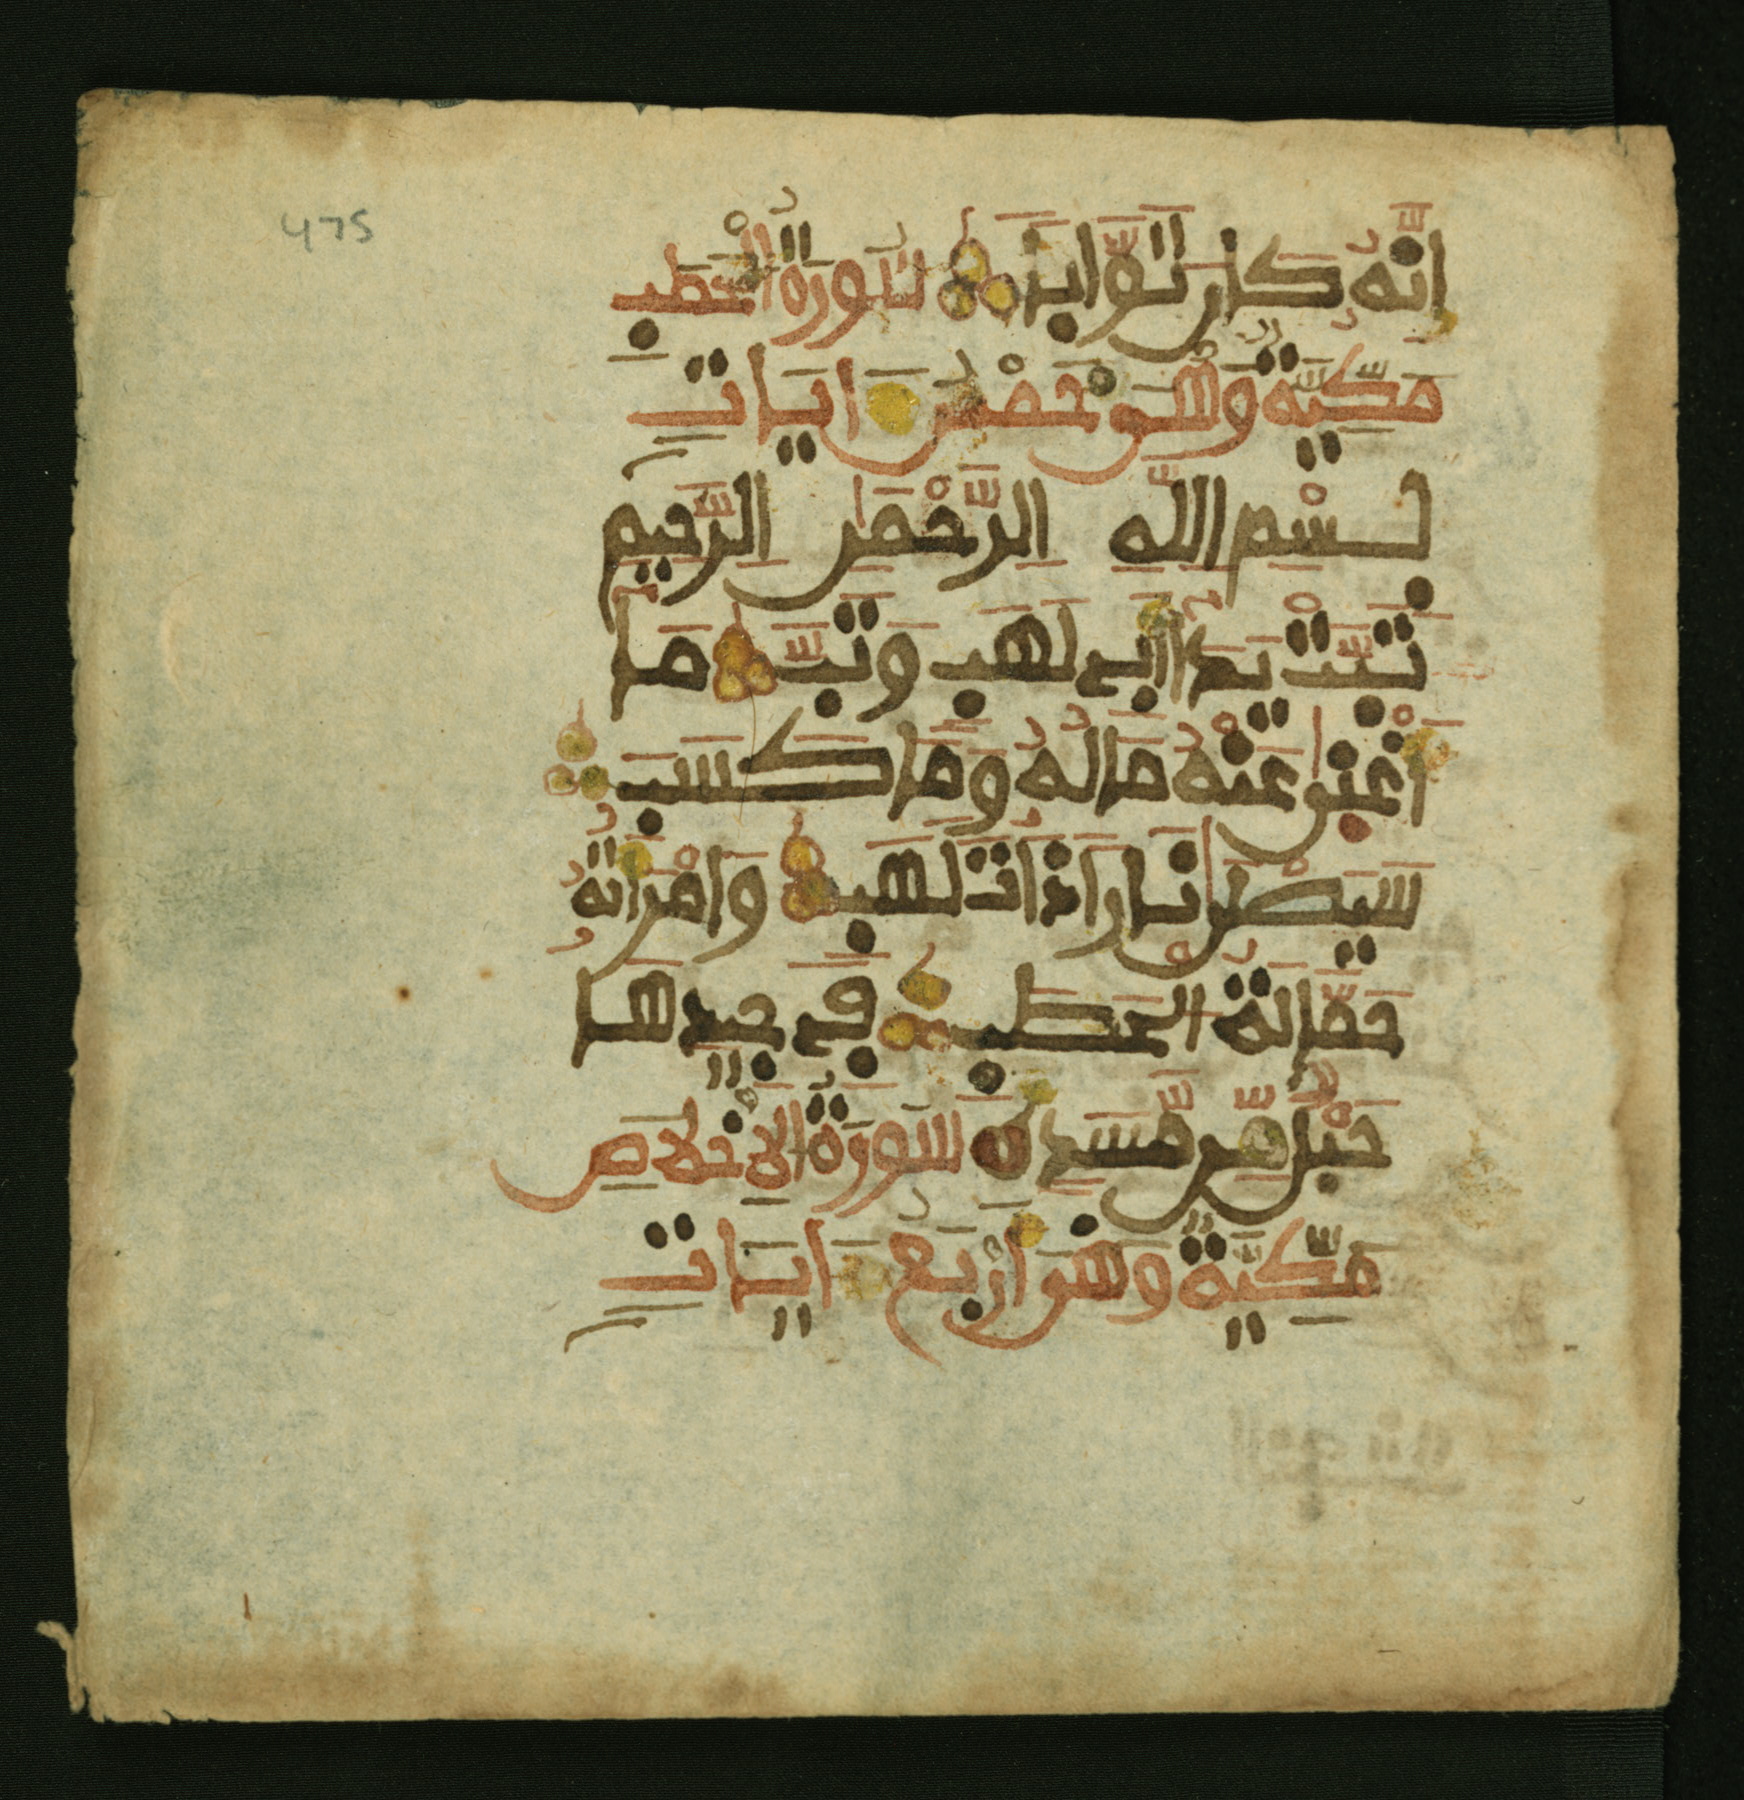 475
إنّه كان توّابا سورة الحطب
مكّيّة وهي خمس ايات
بسم الله الرّحمن الرّحيم
تبّت يدا أبي لهب وتبّ ما
أغنى عنه ماله وما كسب
سيصلى نارا ذات لهب وامرأته
حمّالة الحطب في جيدها
حبل مّن مّسد سورة الإخلاص
مكّيّة وهي أربع ايات